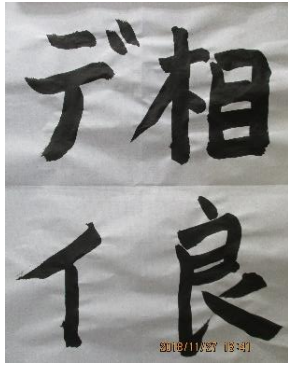 相良
デイ
2018/11/27 16:41